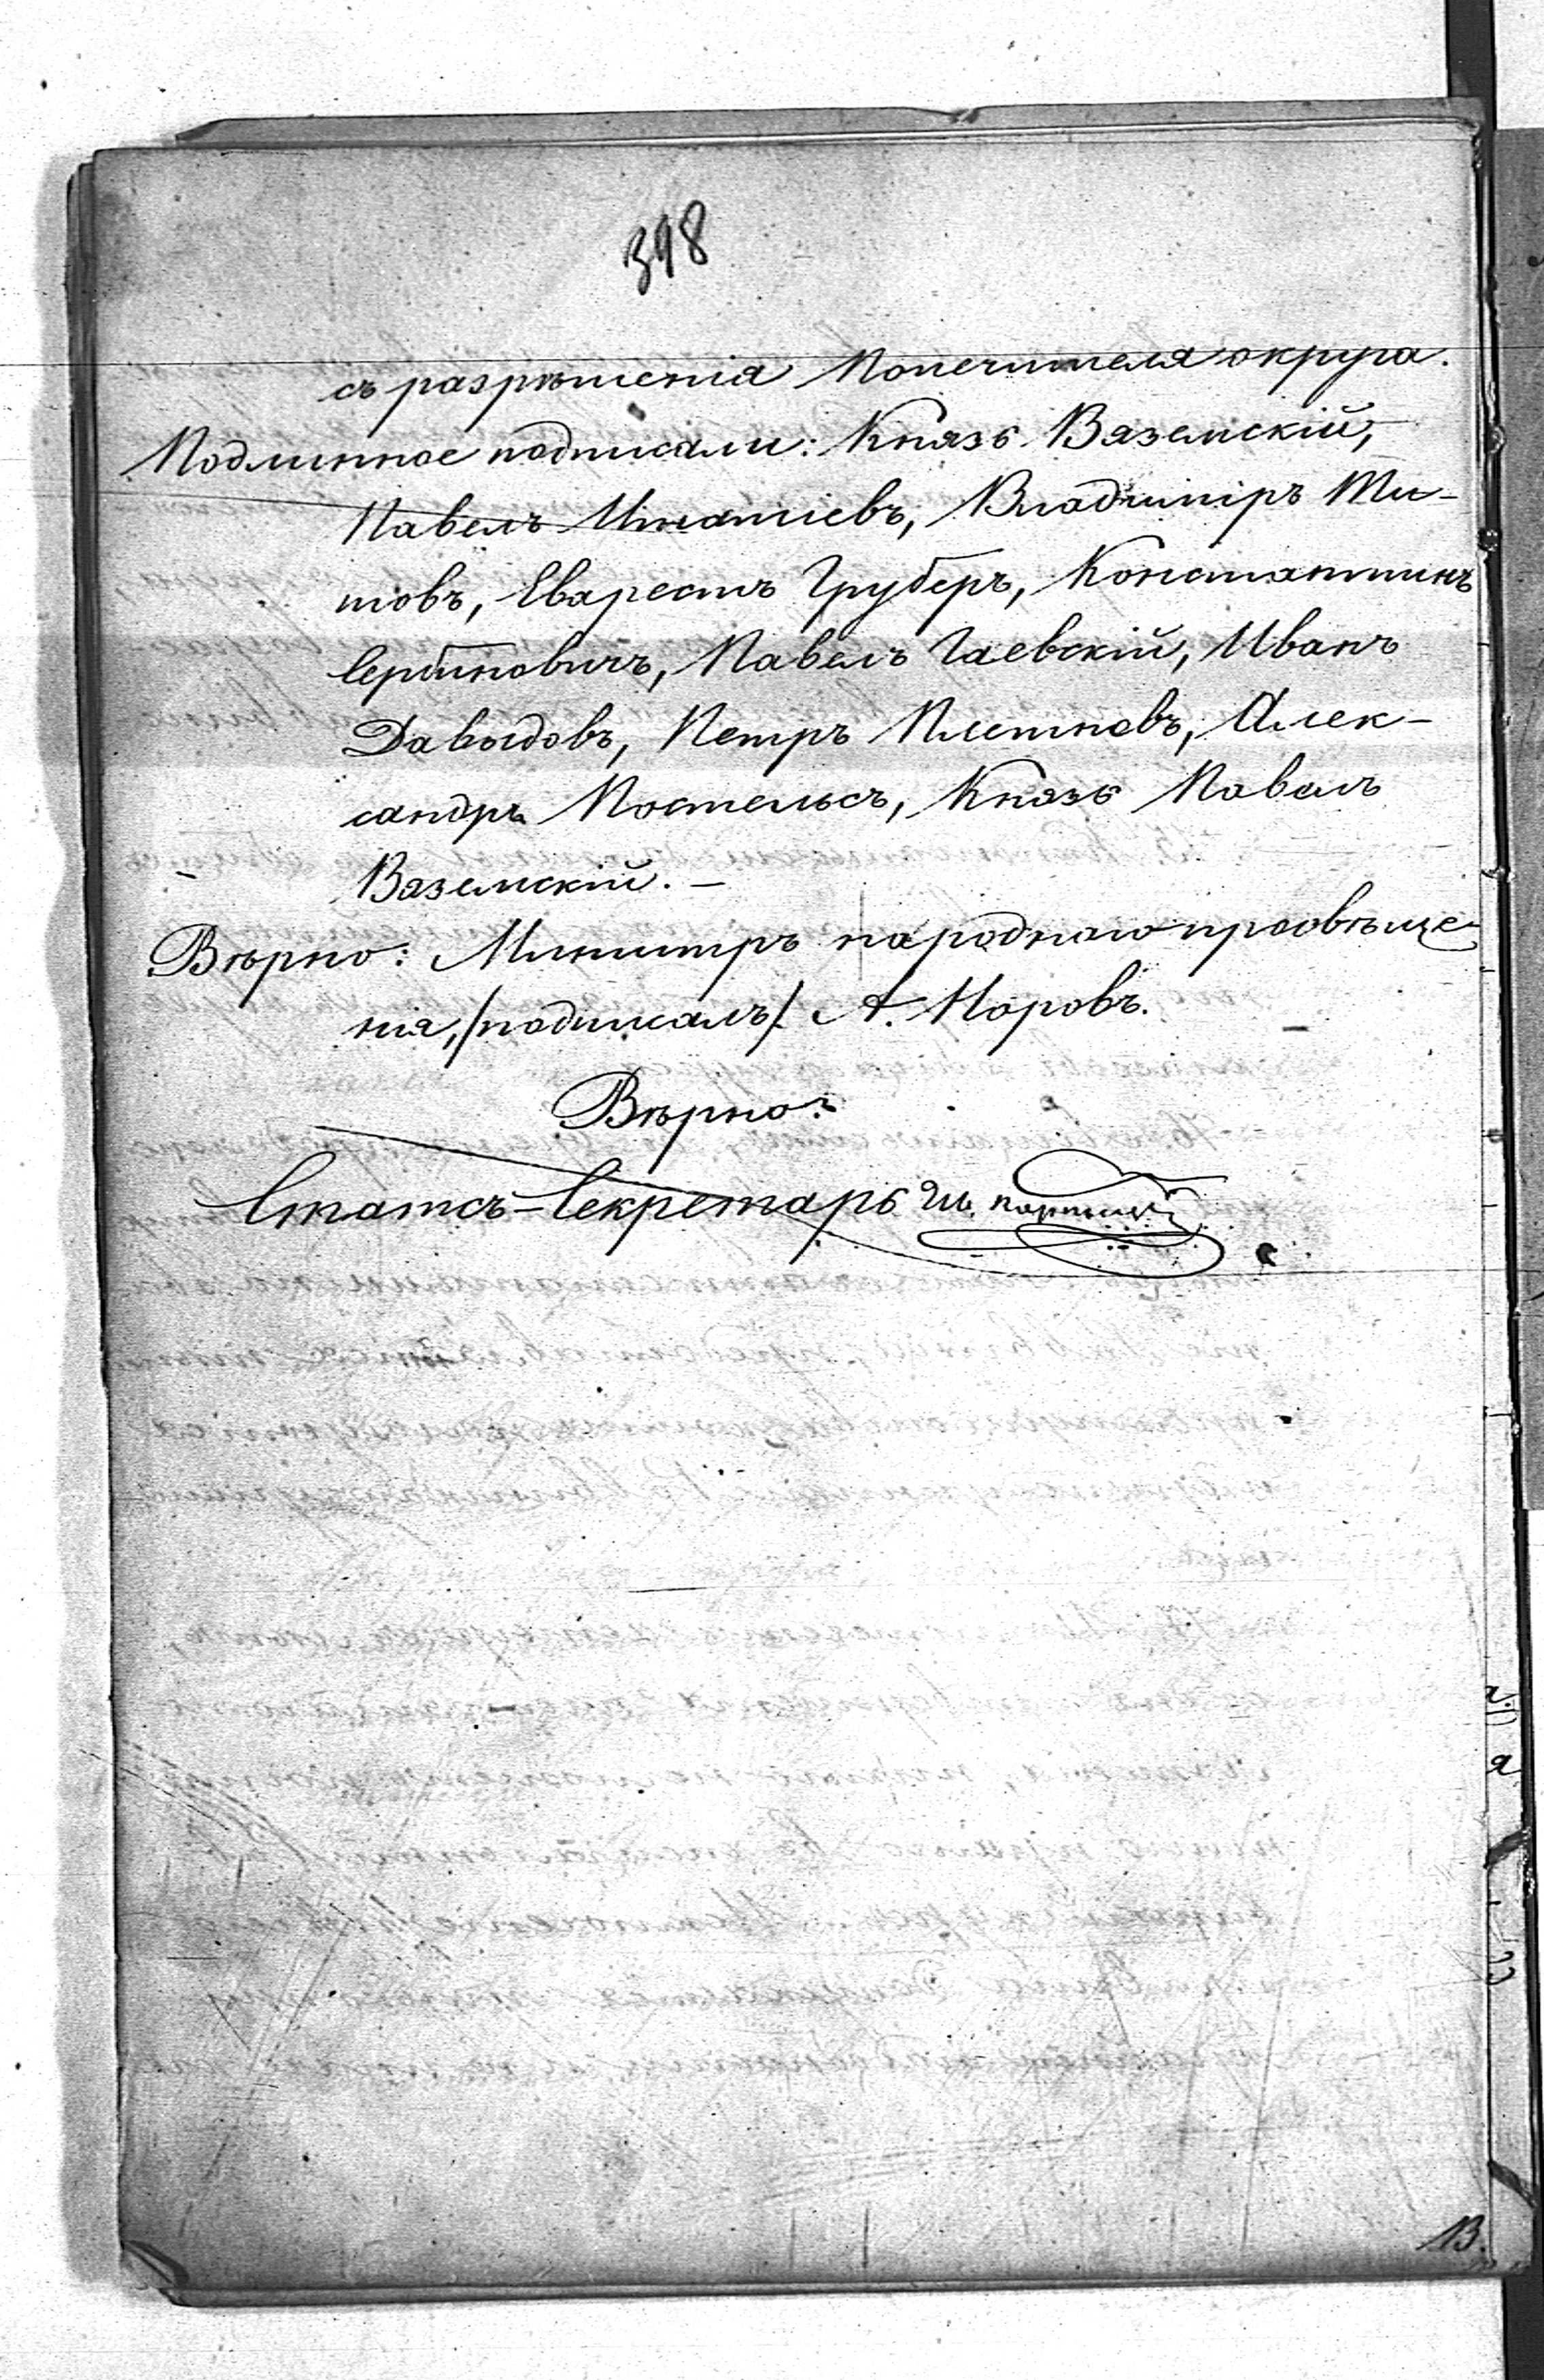 398
съ разрѣшенія Попечителя округа.
Подлинное подписали: Князь Вяземскій,
Павелъ Игнатіевъ, Владиміръ Ти-
товъ, Еварестъ Груберъ, Константинъ
Сербиновичъ, Павелъ Гаевскій, Иванъ
Давыдовъ, Петръ Плетневъ, Алек-
сандръ Постельсъ, Князь Павелъ
Вяземскій. –
Вѣрно: Министръ народнаго просвѣще-
нія, /подписалъ/ А. Норовъ.
Вѣрно:
Статсъ-Секретарь